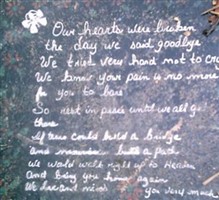 Our hearts were broken
the day we said goodbye
We tried very hard not to cry
We know your pain is no more
for you to bare
So rest in peace until we all get
there
If tears could build a bridge
and memories built a path
We would walk right up to Heaven
And bring you home again
We love and miss you very much